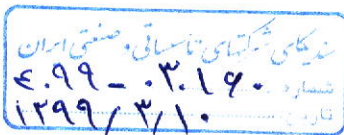 سندیکای شرکتهای تاسیساتی و صنعتی ایران
شماره ۴۰۹۹-۰۳۰۱۶۰
تاریخ ۱۳۹۹/۳/۱۰